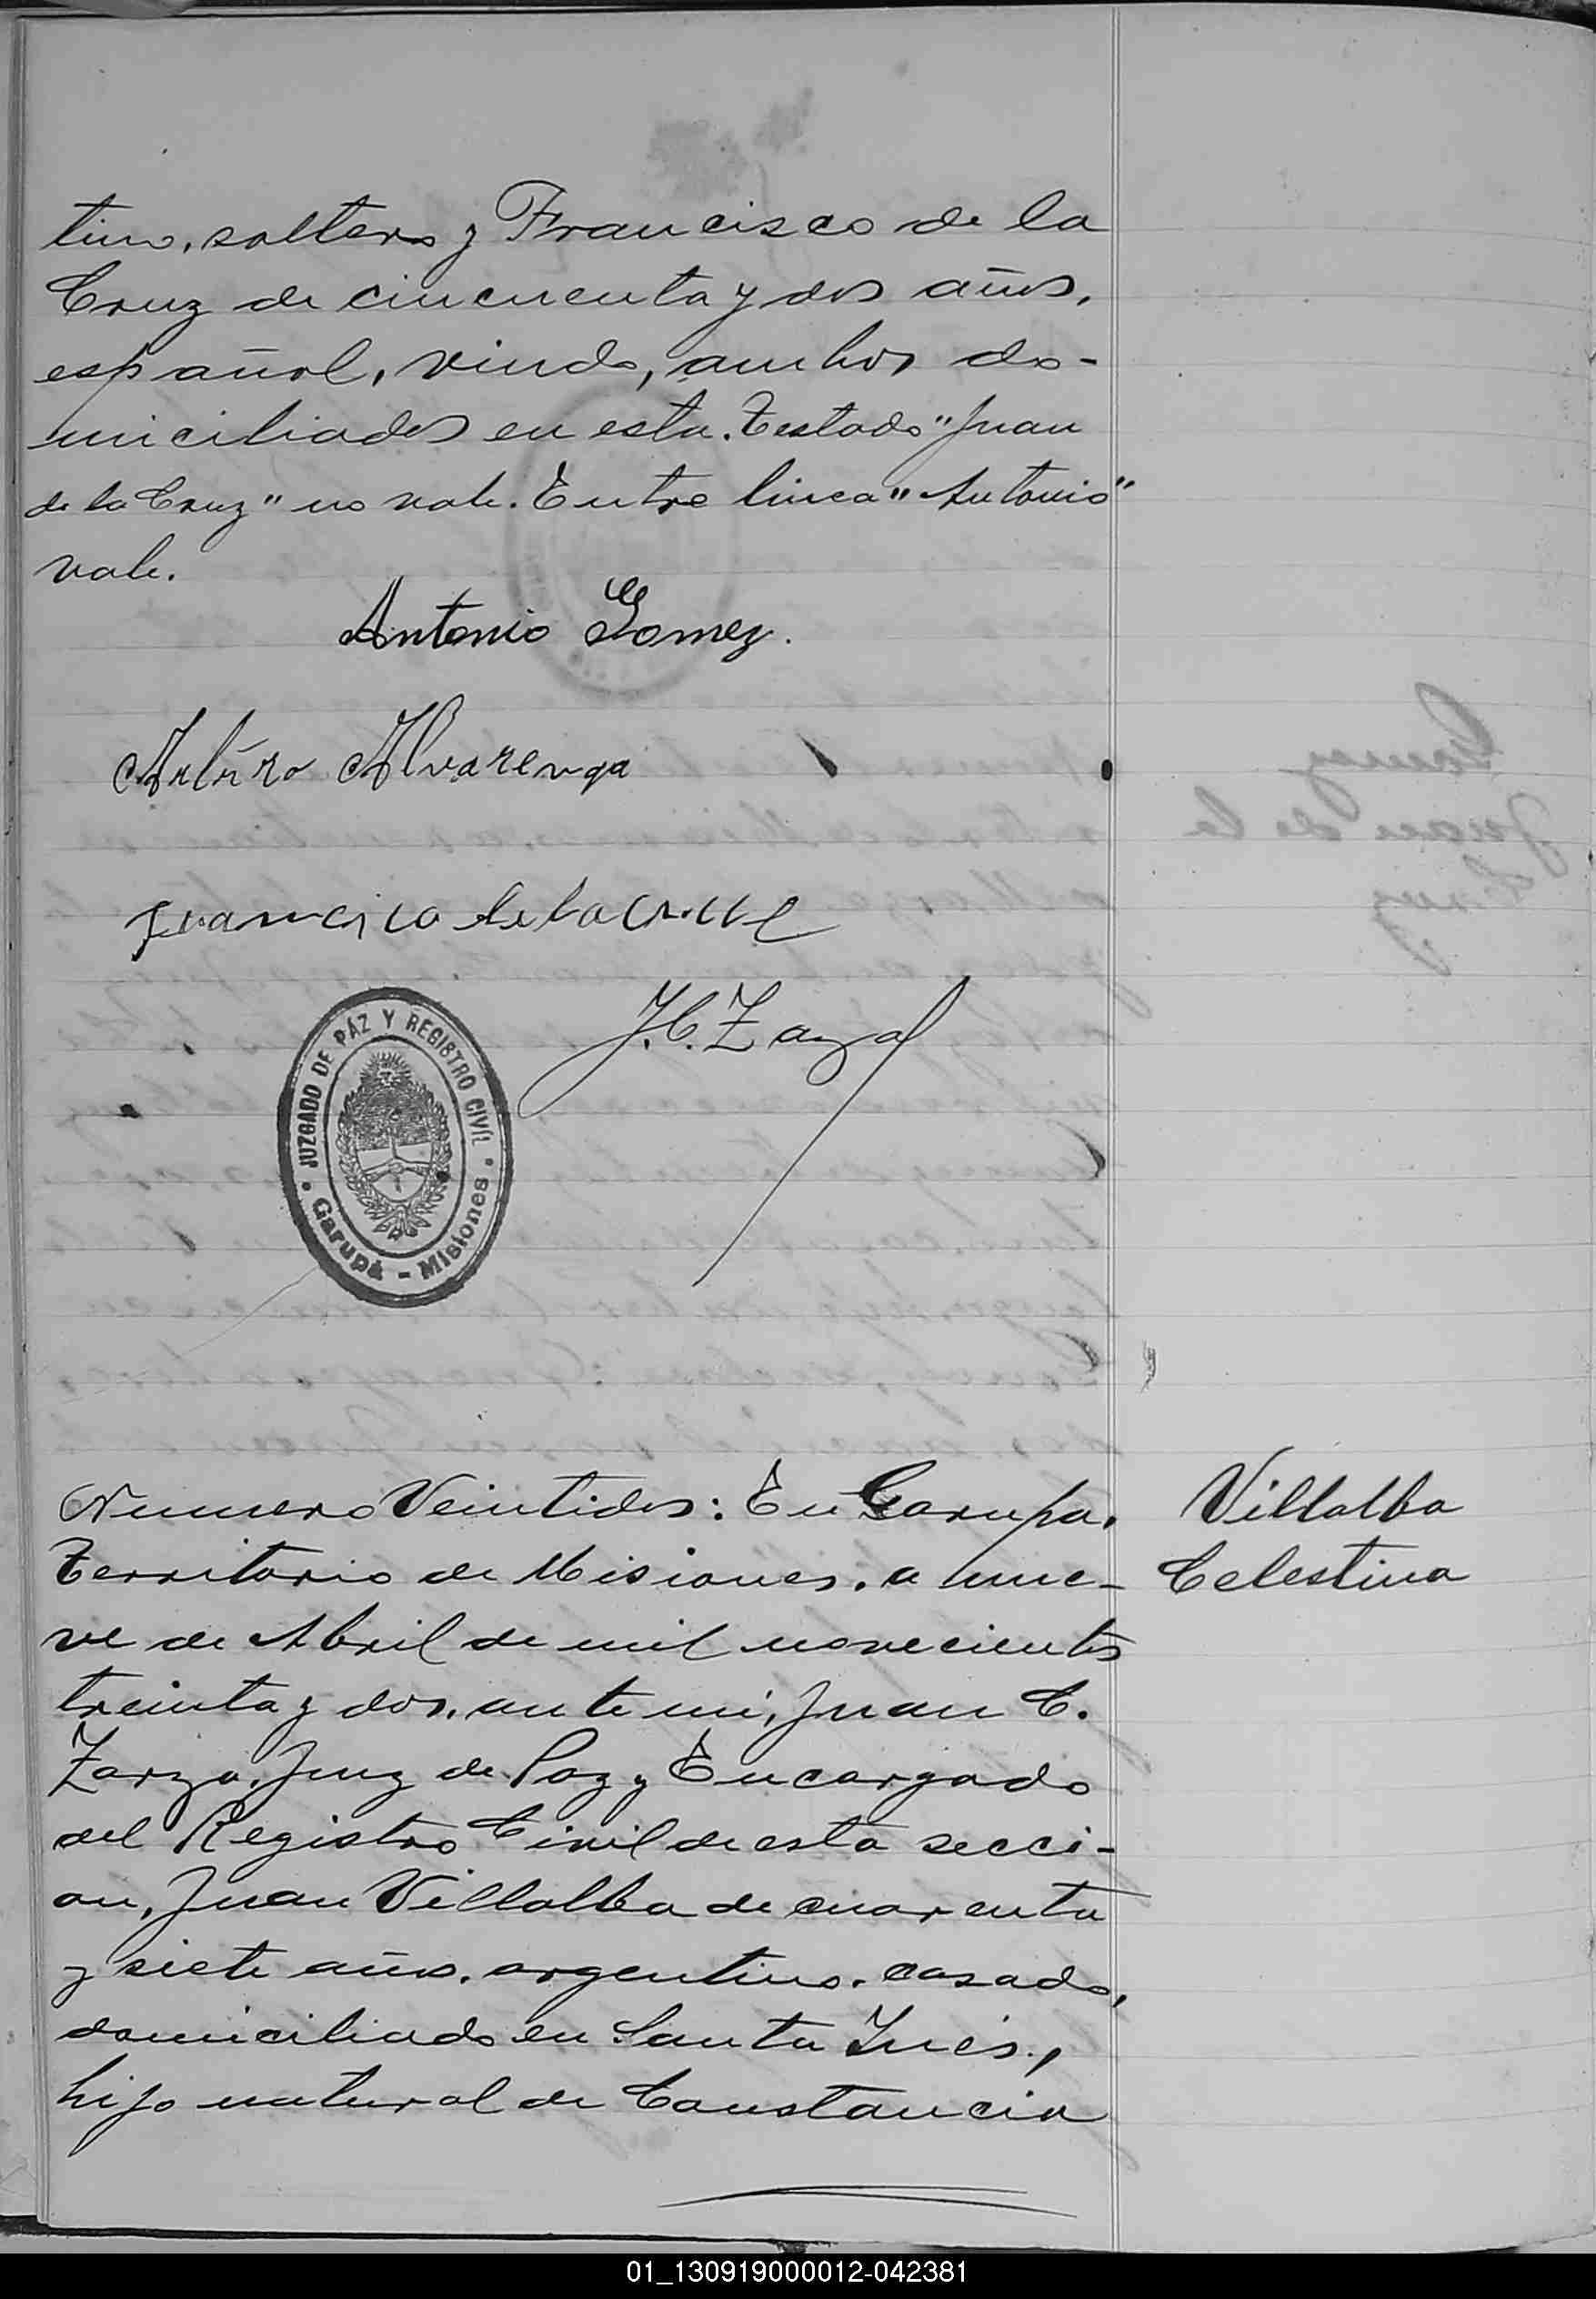 tino, soltero y Francisco de la
Cruz de cincuenta y dos años,
español, viudo, ambos do-
miciliados en esta. Testado "Juan
de la Cruz" no vale. Entre linea "Antonio"
vale.
Antonio Gomez.
Arturo Alvarenga
Francisco de la Cruz
J.C. Zarza
JUZGADO DE PAZ Y REGISTRO CIVIL
Garupá - Misiones
Numero Veintidos: En Garupa,
Territorio de Misiones, a nue-
ve de Abril de mil novecientos
treinta y dos, ante mi, Juan C.
Zarza, Juez de Paz y Encargado
del Registro Civil de esta secci-
on, Juan Villalba de cuarenta
y siete años, argentino, casado,
domiciliado en Santa Inés,
hijo natural de Constancia
Villalba
Celestina
01_130919000012-042381